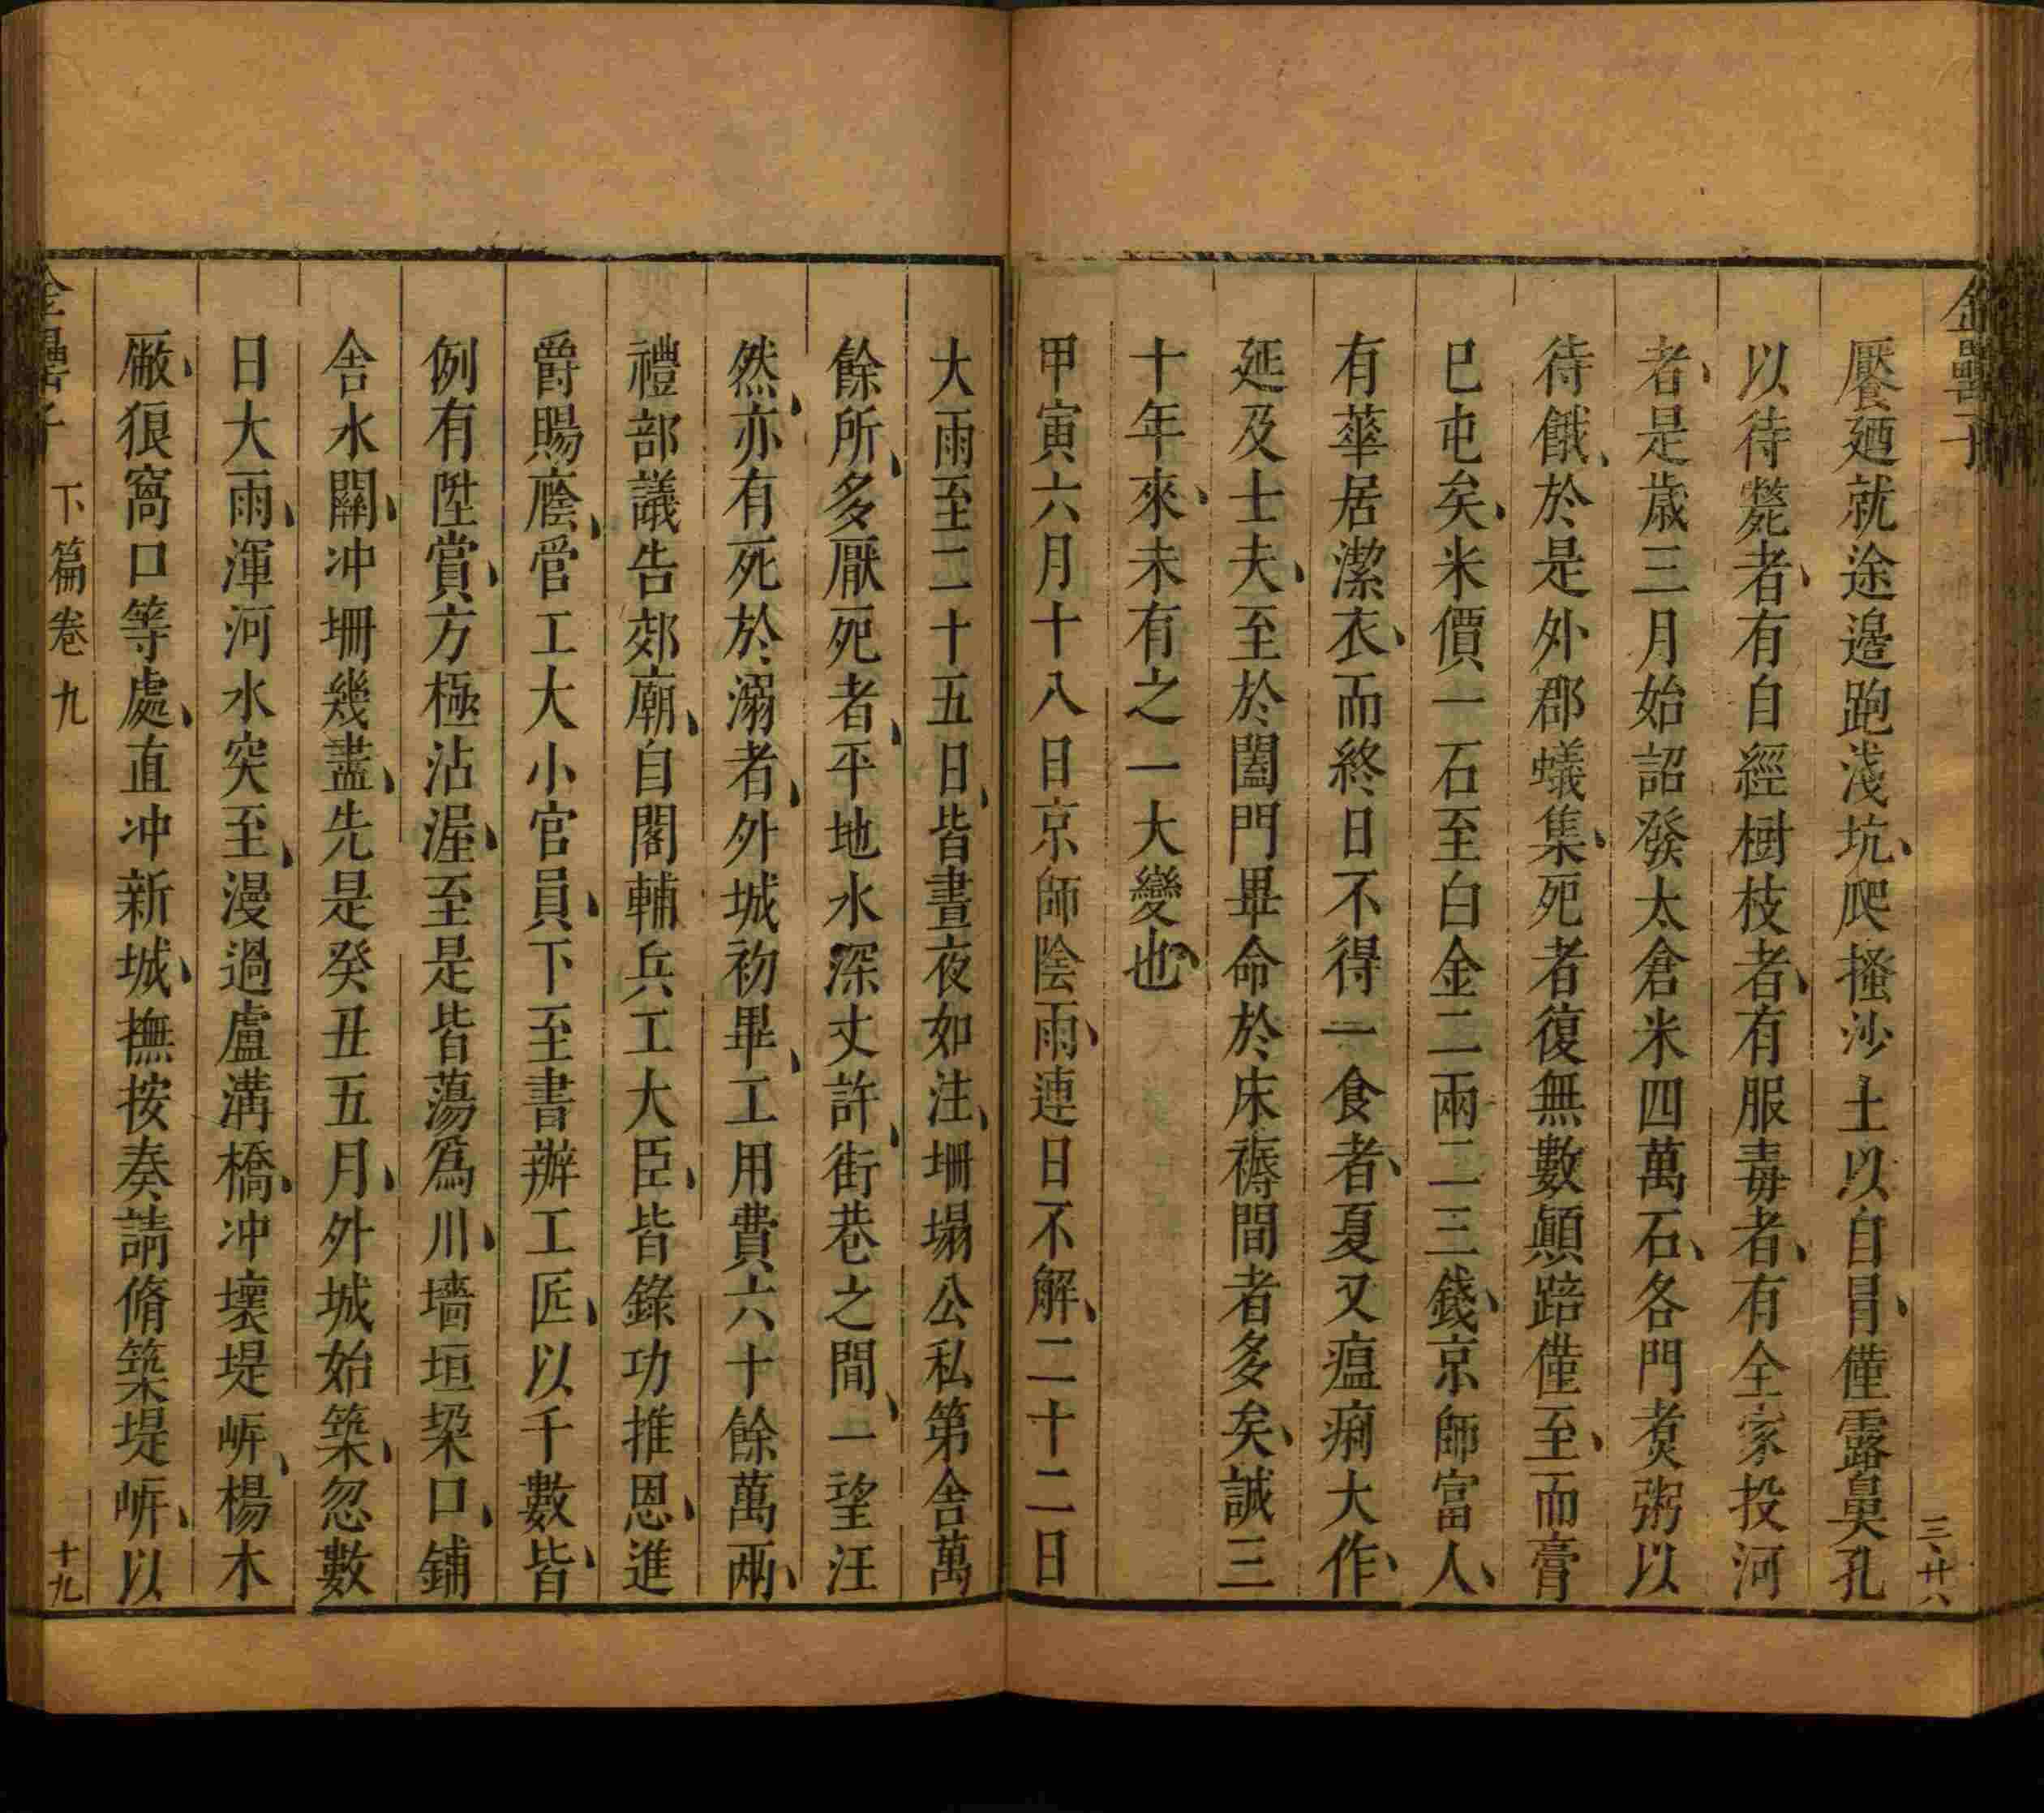 金罍子
三廿六
饜廼就途邉跑淺坑爬搔沙土以自冐僅露鼻孔
以待斃者有自經樹枝者有服毒者有全家投河
者是歳三月始詔發太倉米四萬石各門煑粥以
待餓於是外郡蟻集死者復無數顛踣僅至而膏
已屯矣米價一石至白金二兩二三錢京師富人
有華居潔衣而終日不得一食者夏又瘟痢大作
延及士夫至於闔門畢命於床褥間者多矣誠三
十年來未有之一大變也
甲寅六月十八日京師陰雨連日不解二十二日
大雨至二十五日皆晝夜如注坍塌公私第舎萬
餘所多厭死者平地水深丈許街巷之間一望汪
然亦有死於溺者外城初畢工用費六十餘萬兩
禮部議告郊廟自閣輔兵工大臣皆錄功推恩進
爵賜廕管工大小官員下至書辦工匠以千數皆
例有陞賞方極沾渥至是皆蕩爲川墻垣垜口鋪
舎水關冲坍幾盡先是癸丑五月外城始築忽數
日大雨渾河水突至漫過盧溝橋冲壞堤㟁楊木
厰狼窩口等處直冲新城撫按奏請脩築堤㟁以
金罍子 下篇卷九 十九